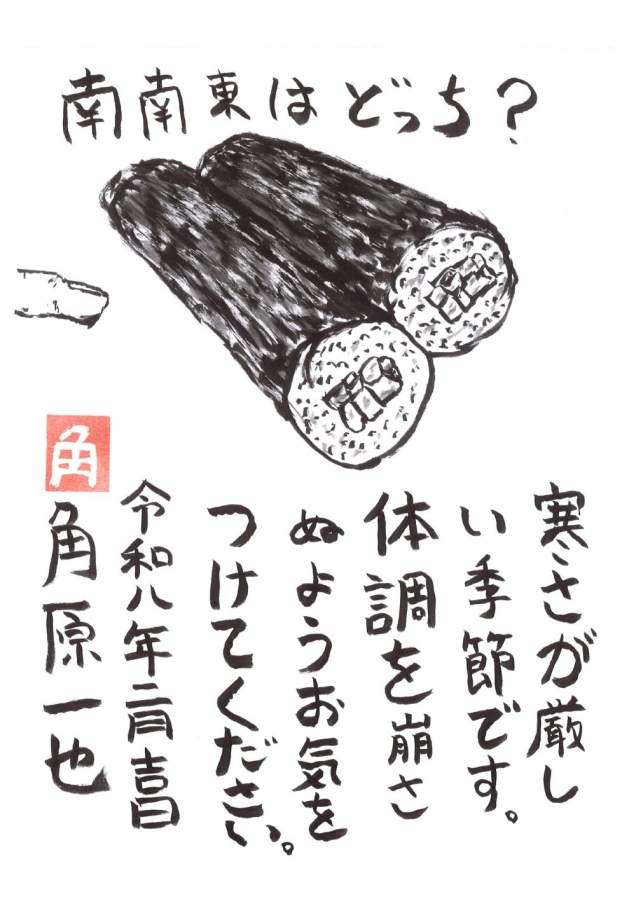 南南東はどっち？
寒さが厳し
い季節です。
体調を崩さ
ぬようお気を
つけてください。
令和八年二月吉日
角
角原一也